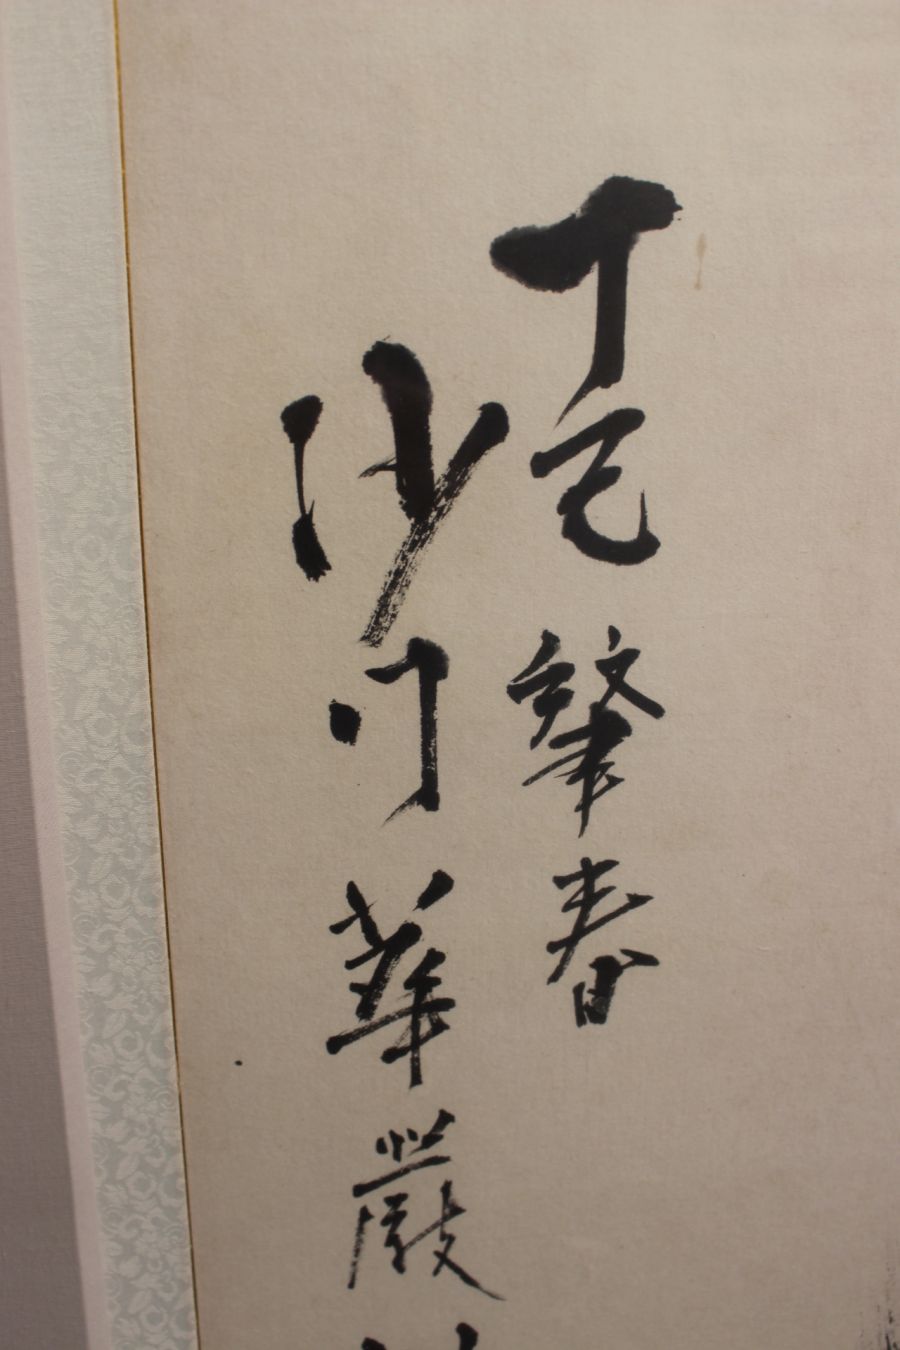 丁巳肇春
沙门華嚴